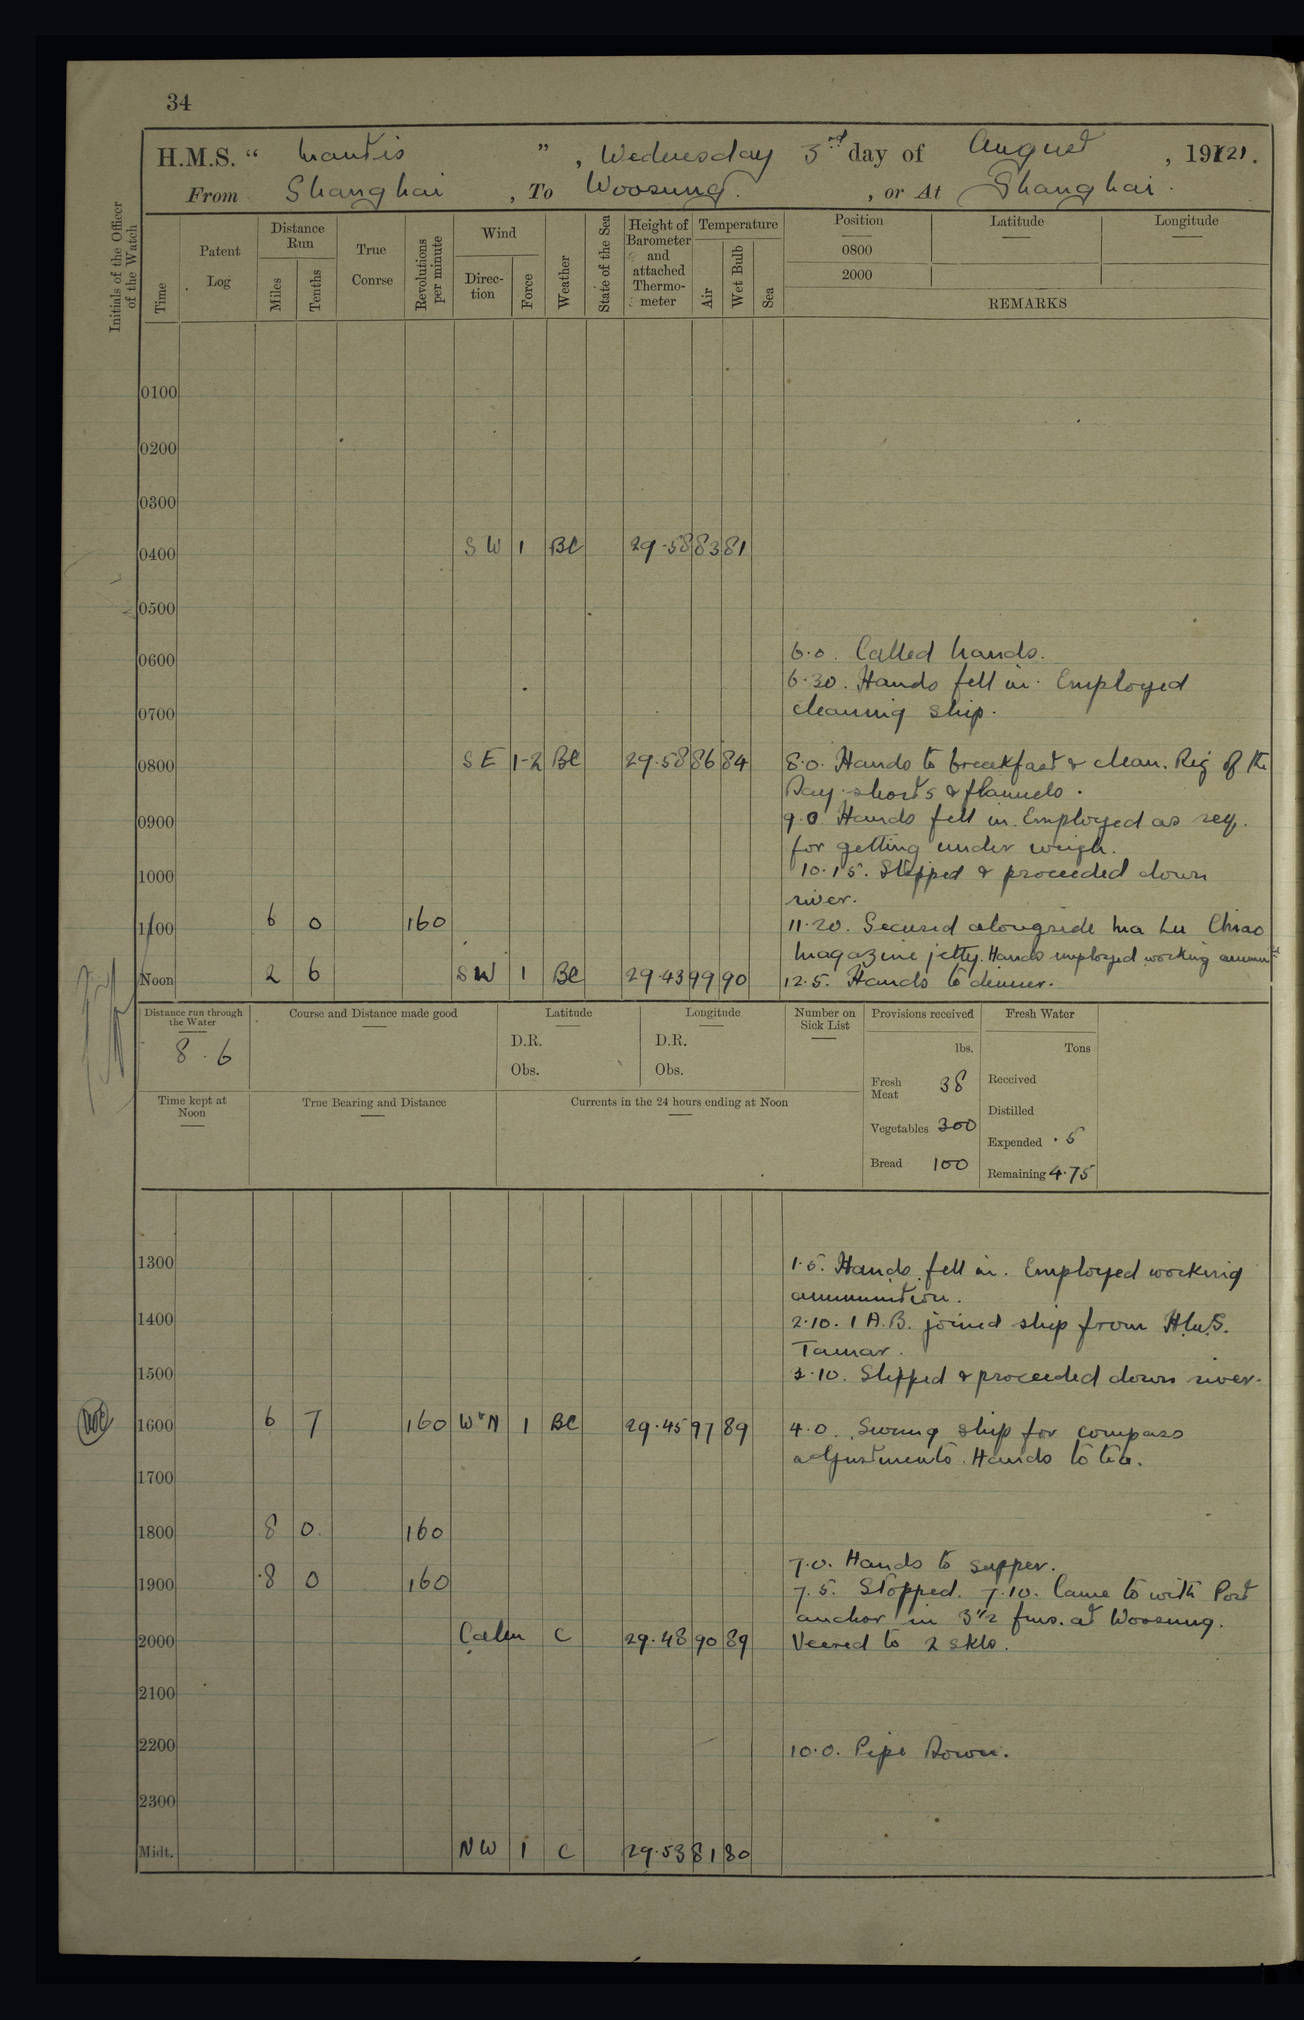 34
H.M.S. “ Mantis ” , Wednesday 3rd day of August , 1921.
From Shanghai , To Woosung. , or At Shanghai.
Initials of the Officer of the Watch
Time
Patent Log
Distance Run
Miles
Tenths
True Course
Revolutions per minute
Wind
Direction
Force
Weather
State of the Sea
Height of Barometer and attached Thermometer
Temperature
Air
Wet Bulb
Sea
Position
Latitude
Longitude
0800
2000
REMARKS
0100
0200
0300
0400 SW 1 BC 29.58 83 81
0500
0600 6.0. Called hands.
6.30. Hands fell in. Employed
0700 cleaning ship.
0800 SE 1-2 BC 29.58 86 84 8.0. Hands to breakfast & clean. Rig of the
Day. shorts & flannels.
0900 9.0 Hands fell in. Employed as req.
for getting under weigh.
1000 10.15. Slipped & proceeded down
river.
1100 6 0 160 11.20. Secured alongside Ma Lu Chiao
magazine jetty. Hands employed working
Noon 2 6 SW 1 BC 29.43 99 90 12.5. Hands to dinner.
Distance run through the Water
8.6
Course and Distance made good
Latitude
D.R.
Obs.
Longitude
D.R.
Obs.
Number on Sick List
Provisions received
lbs.
Fresh Meat 38
Vegetables 300
Bread 100
Fresh Water
Tons
Received
Distilled
Expended .5
Remaining 4.75
Time kept at Noon
True Bearing and Distance
Currents in the 24 hours ending at Noon
1300 1.5. Hands fell in. Employed working
ammunition.
1400 2.10. 1 A.B. joined ship from H.M.S.
Tamar.
1500 3.10. Slipped & proceeded down river.
1600 6 7 160 W'N 1 BC 29.45 97 89 4.0. Swung ship for compass
adjustments. Hands to tea.
1700
1800 8 0 160
7.0. Hands to supper.
1900 8 0 160 7.5. Stopped. 7.10. Came to with Port
anchor in 3 1/2 fms. at Woosung.
2000 Calm C 29.48 90 89 Veered to 2 skls.
2100
2200 10.0. Pipe Down.
2300
Midt. NW 1 C 29.53 81 80